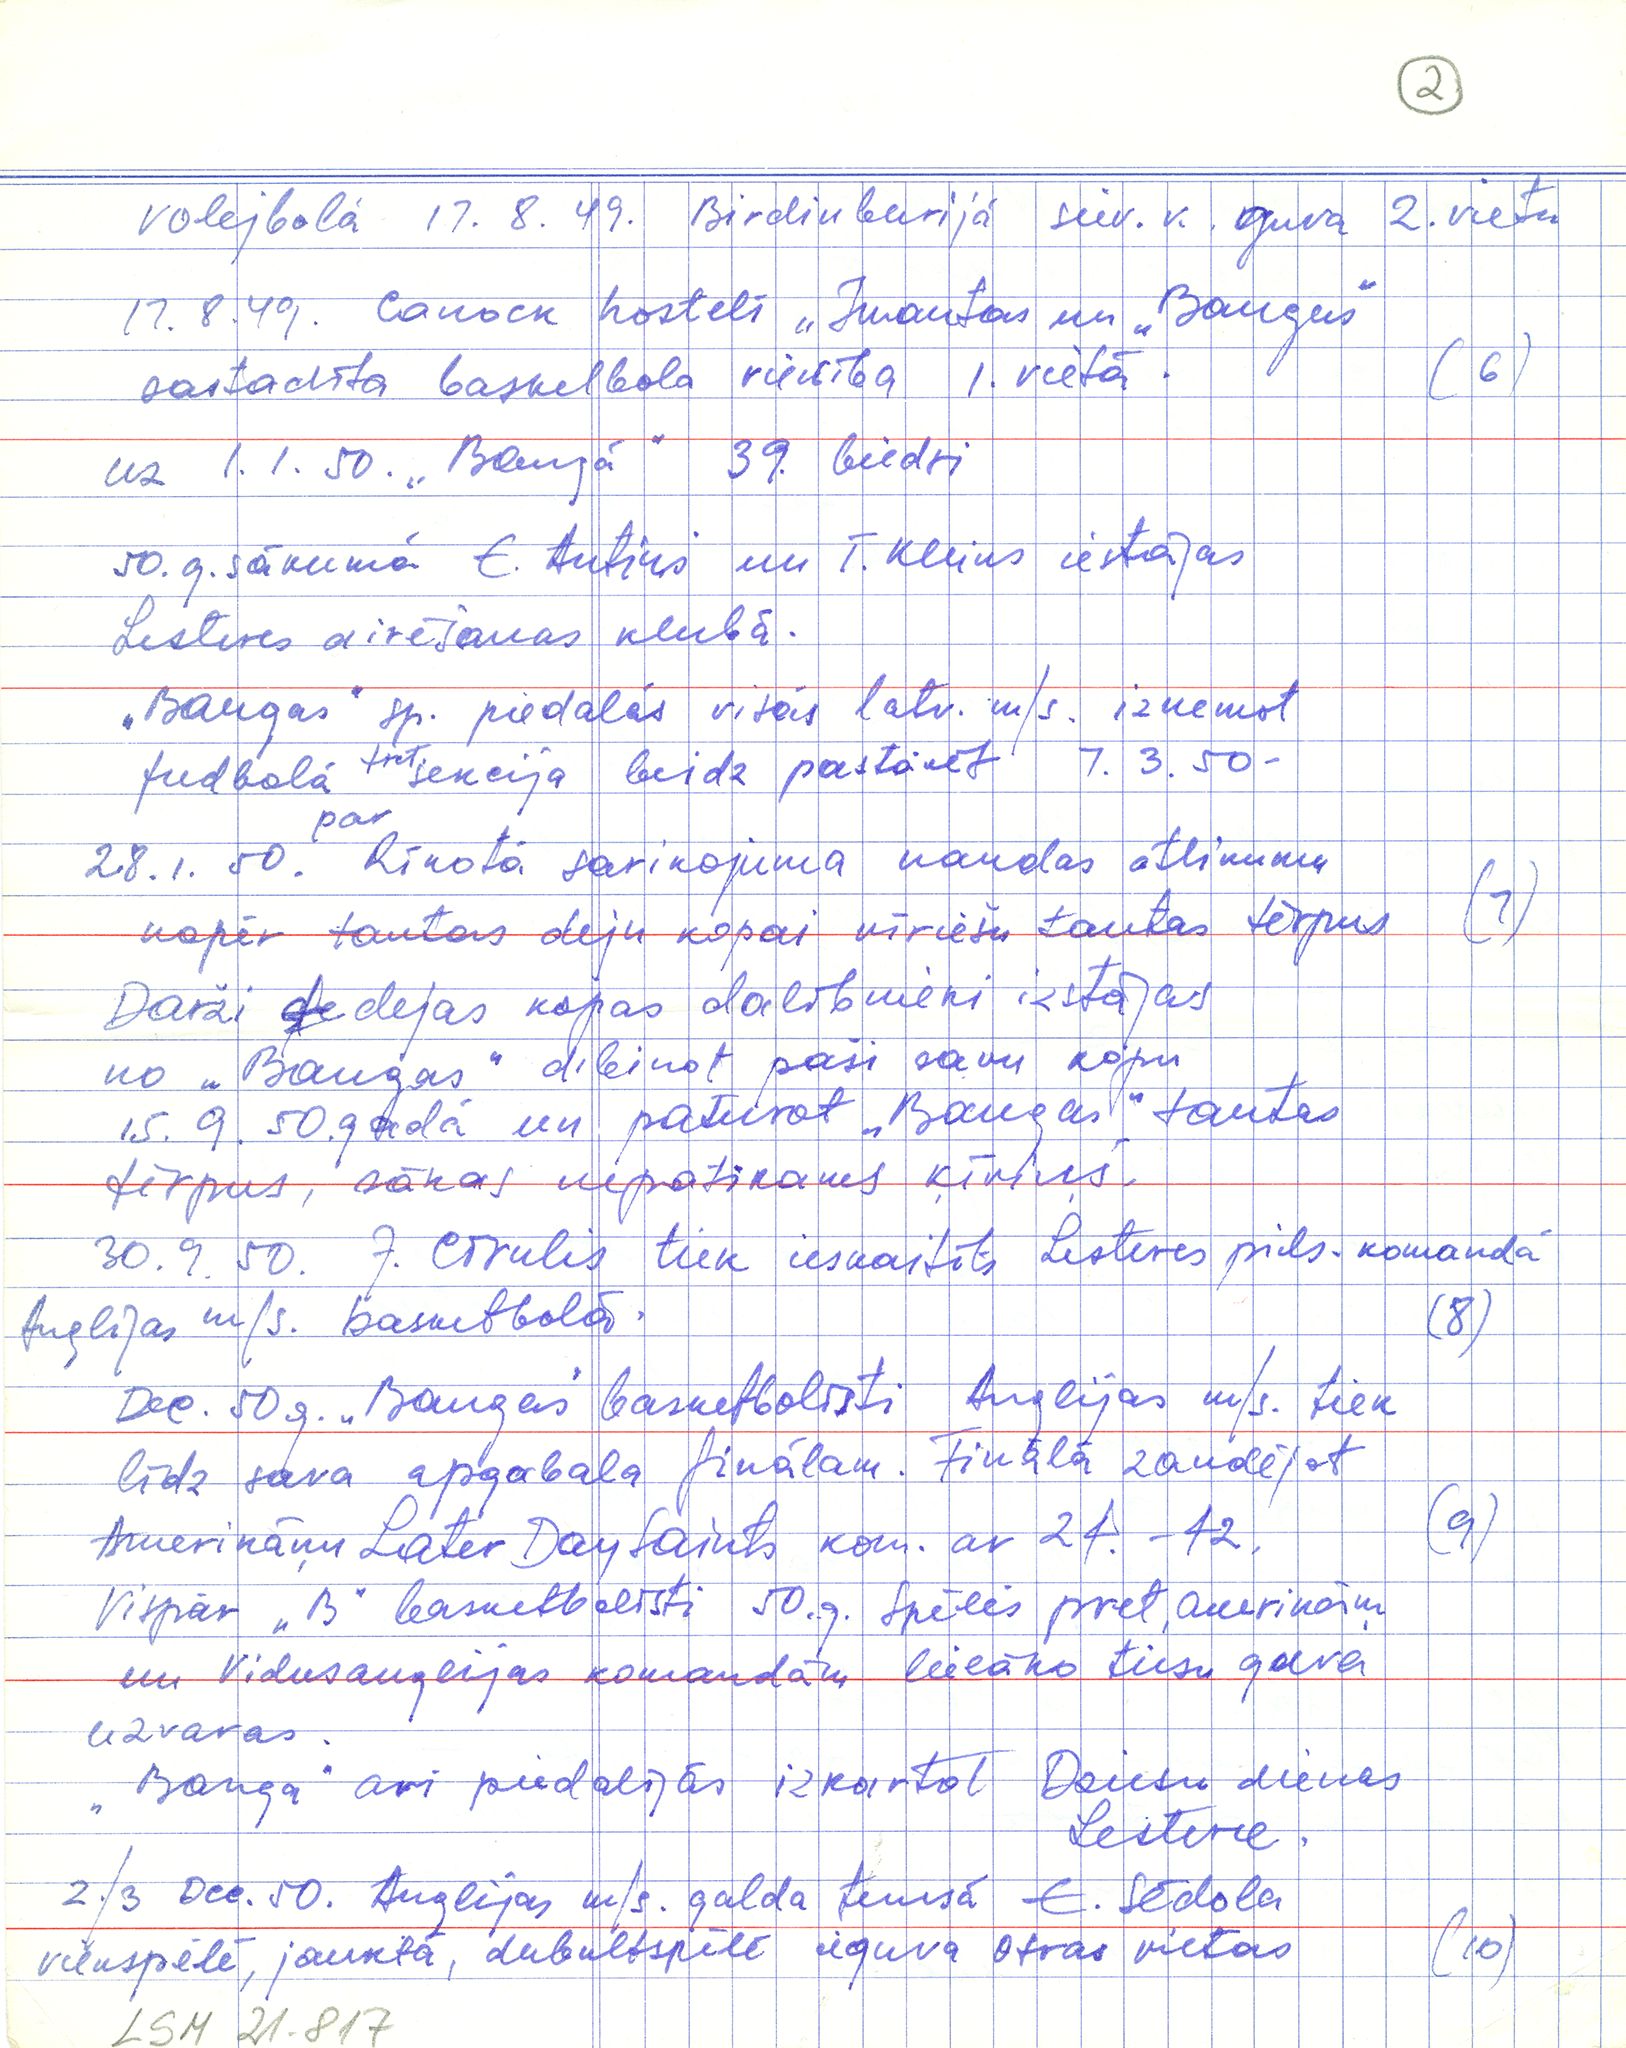 2
Volejbolā 17.8.49. Birdinburijā siev. k. guva 2. vietu
17.8.49. Canock hostelī „Imantas un „Bangas"
sastadīta basketbola vienība 1. vietā. (6)
uz 1.1.50. „Bangā" 39. biedri
50. g. sākumā E. Antiņš un T. Kleins iestājas
Lesteres airēšanas klubā.
„Bangas" sp. piedalās visās latv. m/s. izņemot
fudbolā sekcija beidz pastāvēt 7.3.50-
28.1.50. par Rīkotā sarikojuma naudas atlikumu
nopēr tautas deju kopai vīriešu tautas tērpus (7)
Darži dejas kopas dalībnieki izstājas
no „Bangas" dibinot paši savu kopu
15.9.50. gadā un paturot „Bangas" tautas
tērpus, sākas nepatikams ķīviņš.
30.9.50. J. Cīrulis tiek ieskaitīts Lesteres pils. komandā
Anglijas m/s. basketbolā. (8)
Dec. 50 g. „Bangas" basketbolisti Anglijas m/s. tiek
līdz sava apgabala finālam. Finālā zaudējot
Amerikāņu Later Day Saints kom. ar 24. - 42. (9)
Vispār „B" basketbolisti 50. g. spēlēs pret amerikāņu
un Vidusanglijas komandām lielāko tiesu guva
uzvaras.
„Banga" arī piedalijās izkartot Dziesu dienas
Lesterē.
2./3 Dec. 50. Anglijas m/s. galda tenisā E. Sēdola
vienspēlē, jauktā, dubultspēlē ieguva otras vietas (10)
LSM 21-817